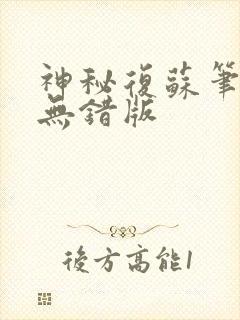 神秘復蘇筆
無錯版
後方高能1